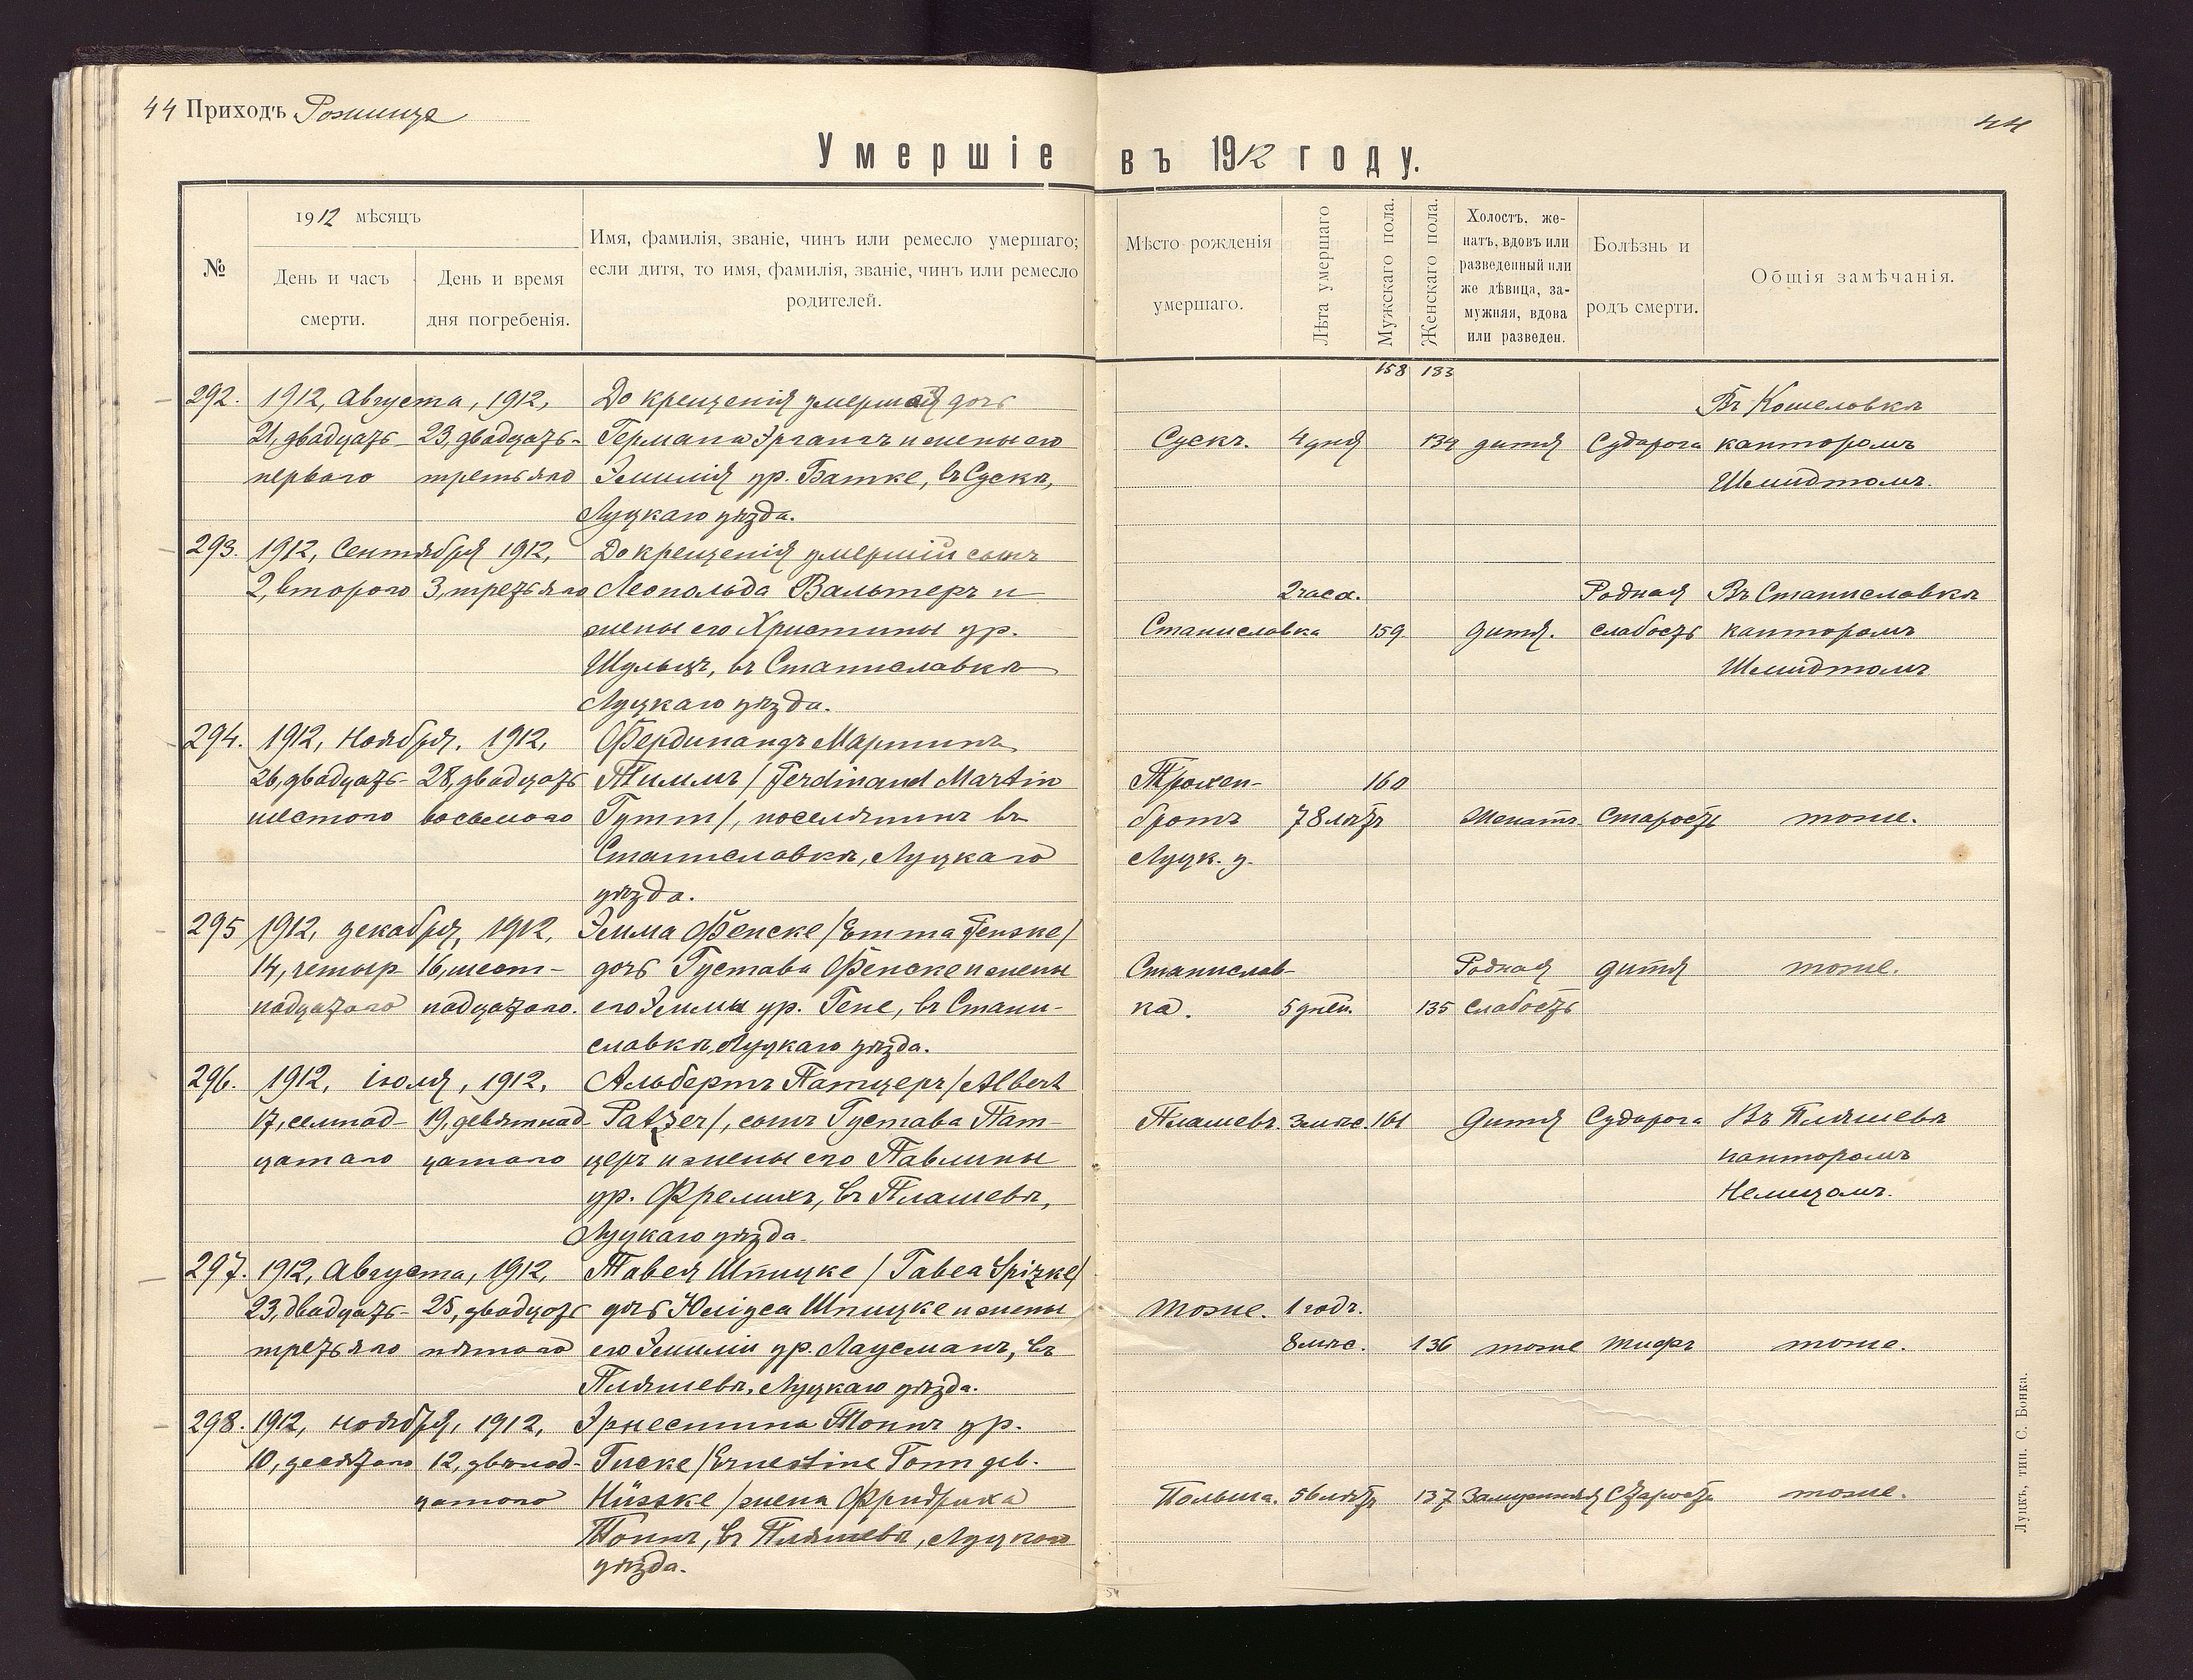 44 Приходъ Рожище
44
Умершіе въ 1912 году.
№
1912 мѣсяцъ
День и часъ
смерти.
День и время
дня погребенія.
Имя, фамилія, званіе, чинъ или ремесло умершаго;
если дитя, то имя, фамилія, званіе, чинъ или ремесло
родителей.
Мѣсто рожденія
умершаго.
Лѣта умершаго
Мужскаго пола.
Женскаго пола.
Холостъ, же-
натъ, вдовъ или
разведенный или
же дѣвица, за-
мужняя, вдова
или разведен.
Болѣзнь и
родъ смерти.
Общія замѣчанія.
158 133
292. 1912, Августа, 1912, До крещенія умершая дочь
21, двадцать 23, двадцать- Германа и жены его
перваго третьяго Эмилія ур. Батке, въ Сускѣ,
Луцкаго уѣзда.
Въ Кошеловкѣ
Сускъ. 4 дня 134 дитя Судорога канторомъ
Шмидтомъ.
293. 1912, Сентября 1912, До крещенія умершій сынъ
2, второго 3, третьяго Леопольда Вальтеръ и
жены его Христины ур.
Шульцъ, въ Станиславкѣ
Луцкаго уѣзда.
2 часа. Родная Въ Станиславкѣ
Станиславка 159 дитя. слабость канторомъ
Шмидтомъ
294. 1912, Ноября, 1912, Фердинандъ Мартинъ
26, двадцать- 28, двадцать Тиммъ / Ferdinand Martin
шестого восьмого /, поселянинъ въ
Станиславкѣ, Луцкаго
уѣзда.
Трохен- 160
бротъ 78 лѣтъ Женатъ Старость тоже.
Луцк. у.
295 1912, декабря, 1912, Эмма Фенске /Emma Fenske/
14, четыр 16, шест- дочь Густава Фенске и жены
надцатаго надцатаго. его Эммы ур. Гене, въ Стани-
славкѣ, Луцкаго уѣзда.
Станислав- Родная дитя тоже.
ка. 5 дней. 135 слабость
296. 1912, іюля, 1912, Альбертъ Патцеръ /Albert
17, семнад- 19, девятнад- Patzer/, сынъ Густава Пат-
цатаго цатаго церъ и жены его Павлины
ур. Фрелихъ, въ Пляшевѣ,
Луцкаго уѣзда.
Пляшевъ. 3 мѣс. 161 дитя Судорога Въ Пляшевѣ
канторомъ
297. 1912, Августа, 1912, Табея Шпицке / Tabea Spizke/
23, двадцать- 25, двадцать дочь Юліуса Шпицке и жены
третьяго пятаго его Эмиліи ур. Лаусманъ, въ
Пляшевѣ, Луцкаго уѣзда.
тоже. 1 годъ.
8 мѣс. 136 тоже тифъ тоже.
298. 1912, ноября, 1912, Эрнестина Тоннъ ур.
10, десятаго 12, двѣнад- /Ernestine Tonn geb.
цатаго /жена Фридриха
Тоннъ, въ Пляшевѣ, Луцкаго
уѣзда.
Польша. 56 лѣтъ 137 Замужняя Старость тоже.
Луцкъ, тип. С. Бонка.